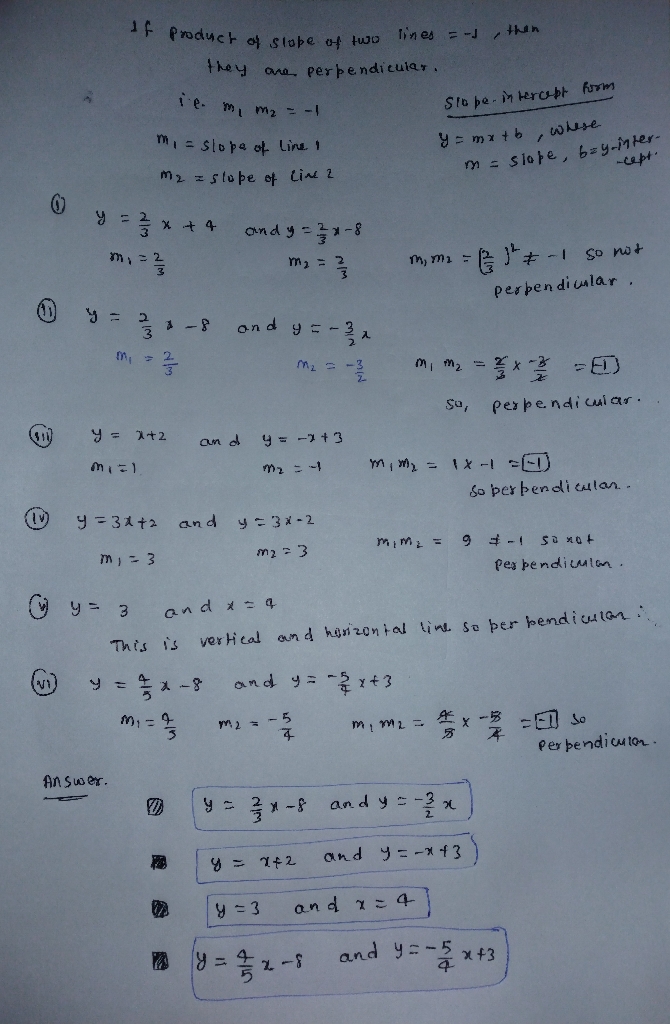 If product of slope of two lines = -1, then
they are perpendicular.
i.e. m₁ m₂ = -1
m₁ = slope of Line 1
m₂ = slope of Line 2
Slope-intercept form
y = mx+b, where
m = slope, b=y-inter-
-cept.
(i) y = 2/3 x + 4 and y = 2/3 x-8
m₁ = 2/3 m₂ = 2/3 m₁m₂ = (2/3)² ≠ -1 so not
perpendicular.
(ii) y = 2/3 x -8 and y = -3/2 x
m₁ = 2/3 m₂ = -3/2 m₁ m₂ = 2/3 x -3/2 = -1
So, perpendicular.
(iii) y = x+2 and y = -x+3
m₁=1 m₂ = -1 m₁m₂ = 1x-1 = -1
So perpendicular.
(iv) y = 3x+2 and y = 3x-2
m₁ = 3 m₂ = 3 m₁m₂ = 9 ≠ -1 so not
perpendicular.
(v) y = 3 and x = 4
This is vertical and horizontal line so perpendicular.
(vi) y = 4/5 x -8 and y = -5/4 x+3
m₁ = 4/5 m₂ = -5/4 m₁m₂ = 4/5 x -5/4 = -1 So
perpendicular.
Answer.
y = 2/3 x-8 and y = -3/2 x
y = x+2 and y = -x+3
y=3 and x = 4
y = 4/5 x-8 and y = -5/4 x+3